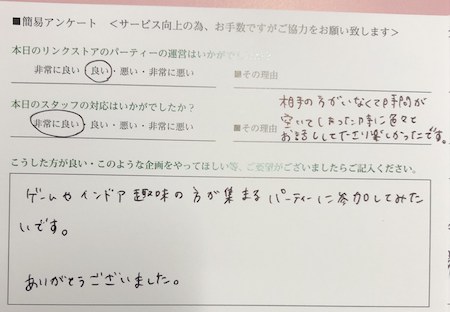 ■簡易アンケート ＜サービス向上の為、お手数ですがご協力をお願い致します＞
本日のリンクストアのパーティーの運営はいかがでしたか？
非常に良い・良い・悪い・非常に悪い
■その理由
本日のスタッフの対応はいかがでしたか？
非常に良い・良い・悪い・非常に悪い
■その理由
相手の方がいなくて時間が
空いてしまった時に色々と
お話ししてたり楽しかったです。
こうした方が良い・このような企画をやってほしい等、ご要望がございましたらご記入ください。
ゲームやインドア趣味の方が集まるパーティーに参加してみた
いです。
ありがとうございました。